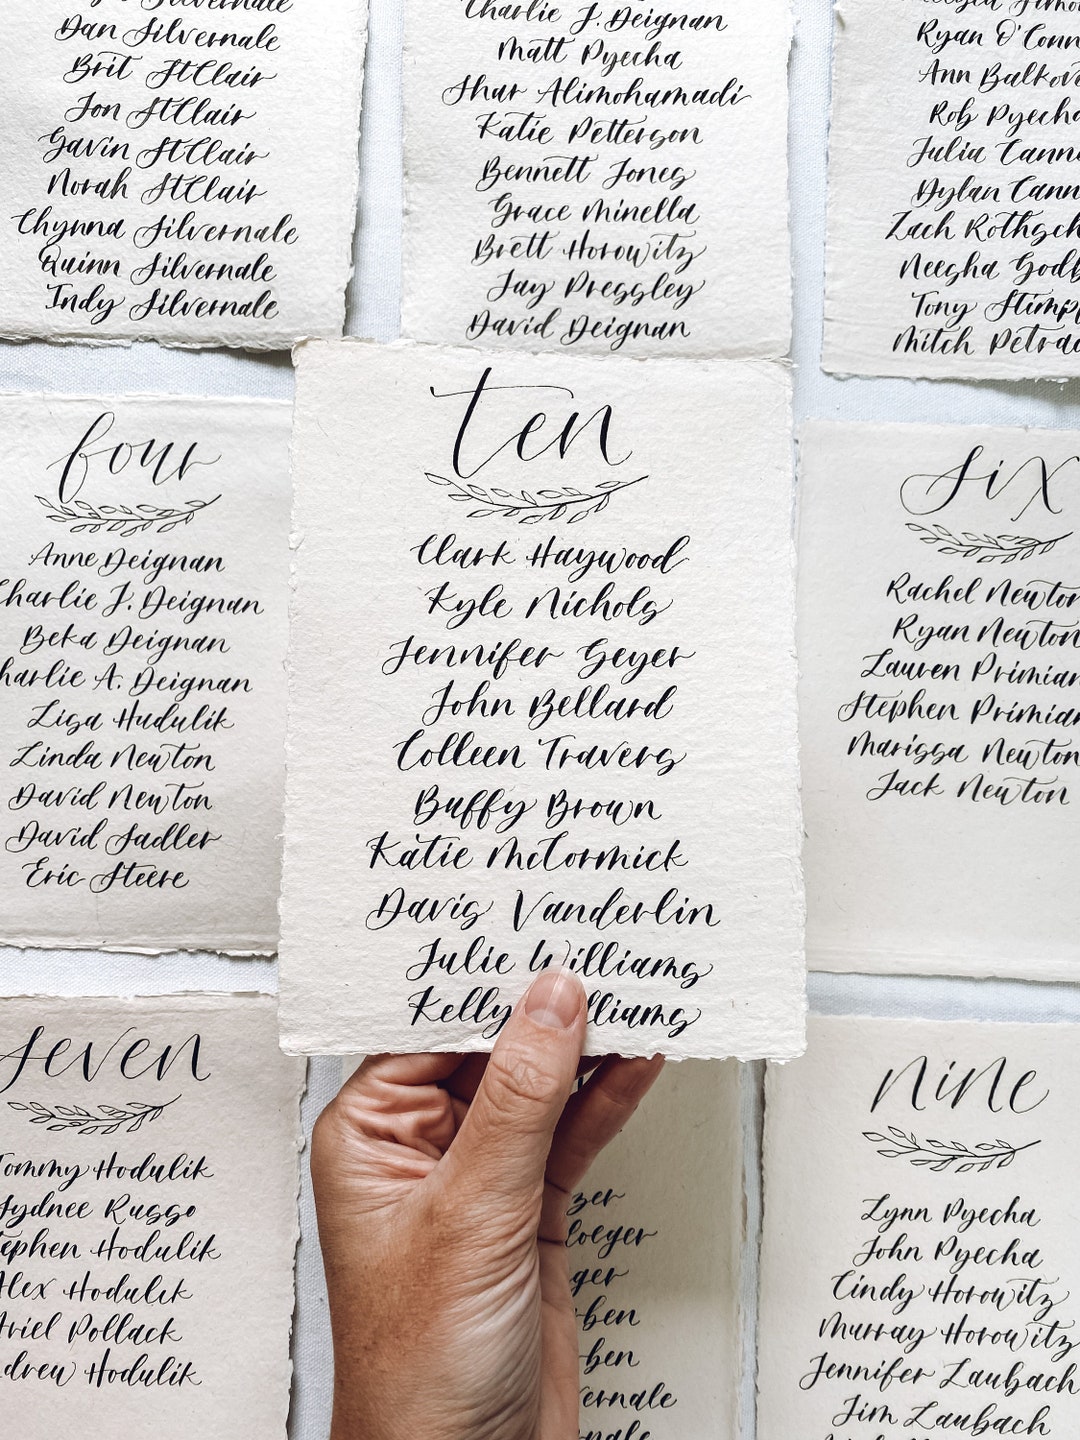 Silvernale
Dan Silvernale
Brit StClair
Jon StClair
Gavin StClair
Norah StClair
Chynna Silvernale
Quinn Silvernale
Indy Silvernale
Charlie J. Deignan
Matt Pyecha
Shar Alimohamadi
Katie Petterson
Bennett Jones
Grace Minella
Brett Horowitz
Jay Pressley
David Deignan
Ryan O'Conn
Ann Balkov
Rob Pyecha
Julia Cann
Dylan Cann
Zach Rothsch
Neesha Godb
Tony Stimp
Mitch Petra
four
Anne Deignan
Charlie J. Deignan
Beka Deignan
Charlie A. Deignan
Lisa Hudulik
Linda Newton
David Newton
David Sadler
Eric Steere
ten
Clark Haywood
Kyle Nichols
Jennifer Geyer
John Bellard
Colleen Travers
Buffy Brown
Katie McCormick
Davis Vanderlin
Julie Williams
Kelly lliams
six
Rachel Newton
Ryan Newton
Lauren Primian
Stephen Primian
Marissa Newton
Jack Newton
seven
Tommy Hodulik
Sydnee Russo
tephen Hodulik
Alex Hodulik
Ariel Pollack
ndrew Hodulik
zer
loeger
ger
rben
rben
ernale
nale
nine
Lynn Pyecha
John Pyecha
Cindy Horowitz
Murray Horowitz
Jennifer Laubach
Jim Laubach